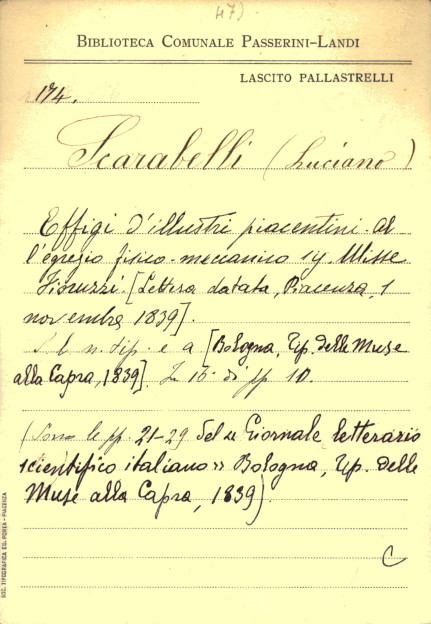 47)
BIBLIOTECA COMUNALE PASSERINI-LANDI
LASCITO PALLASTRELLI
174.
Scarabelli (Luciano)
Effigi d'illustri piacentini. Al
l'egregio fisico-meccanico sig. Ulisse
Fioruzzi. [Lettera datata, Piacenza, 1
novembre 1839].
S. l. n. tip. e a [Bologna, Tip. delle Muse
alla Capra, 1839]. In 16° di pp 10.
(Sono le pp. 21-29 del « Giornale letterario
scientifico italiano» Bologna, Tip. delle
Muse alla Capra, 1839).
C
SOC. TIPOGRAFICA ED. POREA - PIACENZA